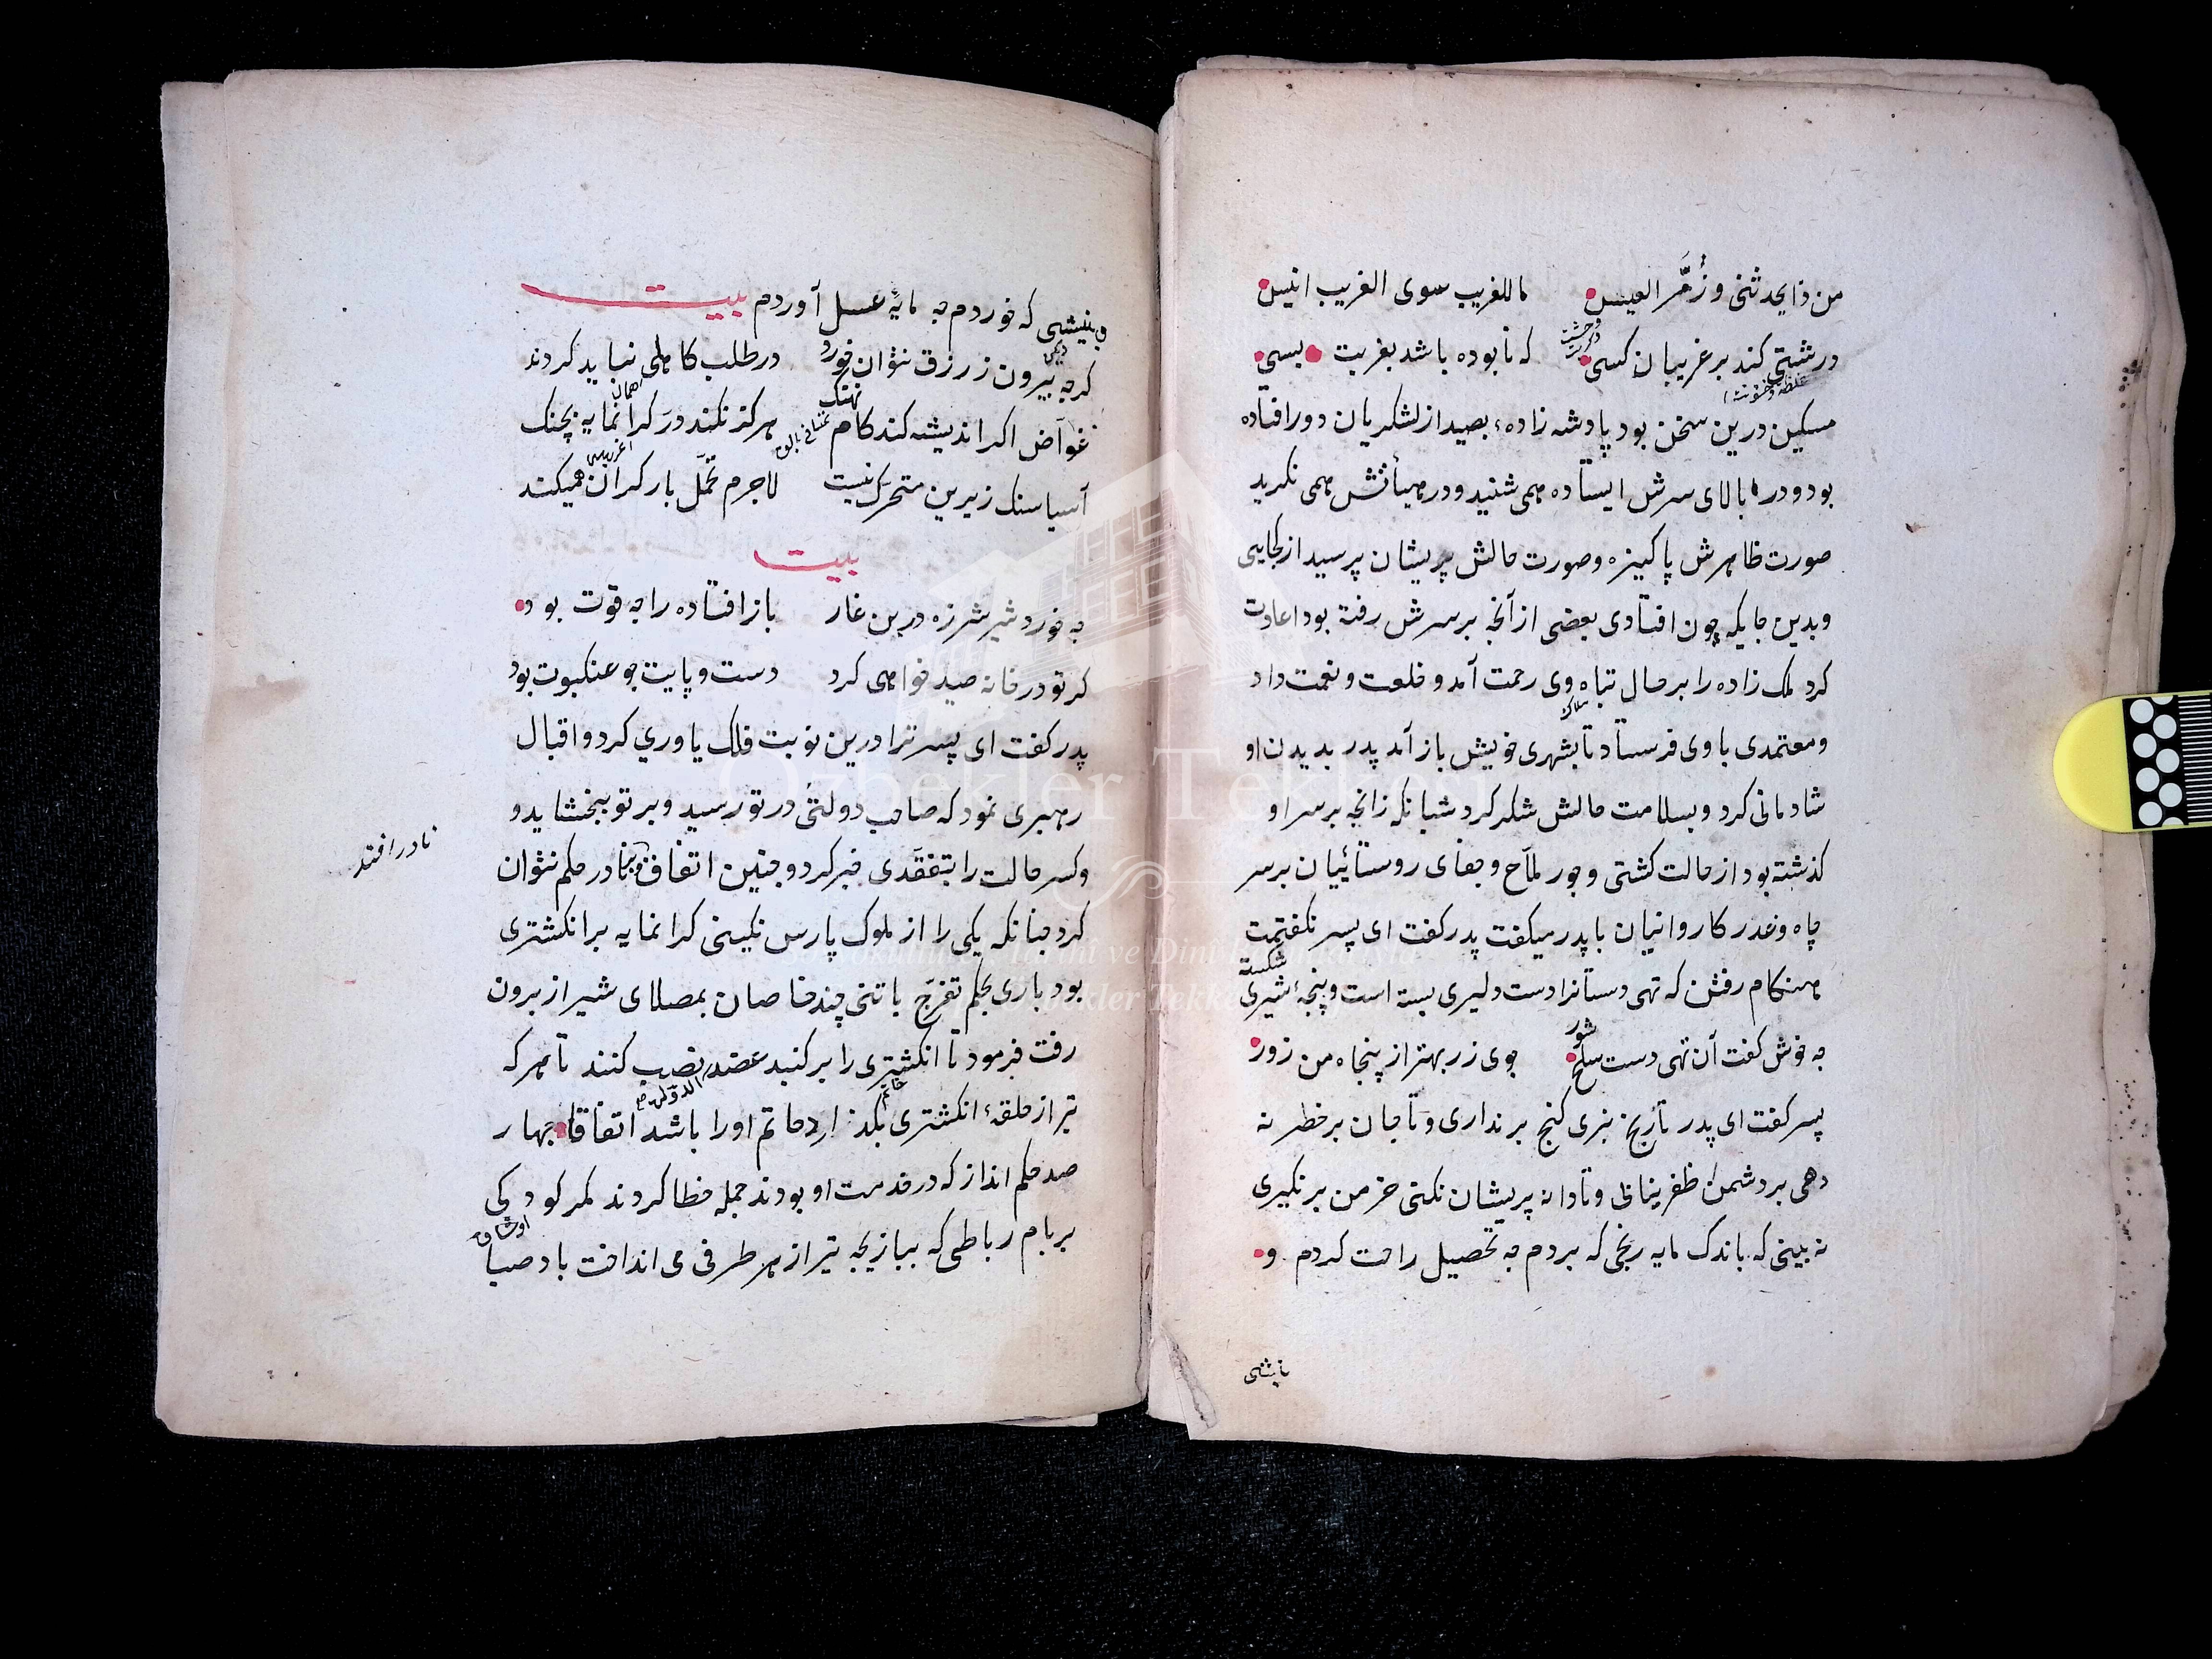 من ذا یحدثنی و زُمَّر العیس  ما للغریب سوی الغریب انیس
وحشت
درشتی کند بر غریبان کسی  که نابوده باشد بغربت بسی
غلظه و خشونت
مسکین درین سخن بود پادشه زادهٔ بصید از لشکریان دور افتاده
بود و در بالای سرش ایستاده همی شنید و در هیأتش همی نکرید
صورت ظاهرش پاکیزه و صورت حالش پریشان پرسید از کجایی
و بدین جایکه چون افتادی بعضی از آنچه بر سرش رفته بود اعادت
کرد ملک زاده را بر حال تباه وی رحمت آمد و خلعت و نعمت داد
هلاک
و معتمدی با وی فرستاد تا بشهری خویش باز آمد پدر بدیدن او
شادمانی کرد و بسلامت حالش شکر کرد شبانکه زانچه بر سر او
کذشته بود از حالت کشتی و جور ملاح و جفای روستائیان بر سر
چاه و غدر کاروانیان با پدر میکفت پدر کفت ای پسر نکفتمت
هنکام رفتن که تهی دستانرا دست دلیری بسته است و پنجهٔ شیری
شکسته
چه خوش کفت آن تهی دست سلح  جوی زر بهتر از پنجاه من زور
شور
پسر کفت ای پدر تا رنج نبری کنج بر نداری و تا جان بر خطر نه
دهی بر دشمن ظفر نیابی و تا دانه پریشان نکنی خرمن بر نکیری
نه بینی که باندک مایه رنجی که بردم چه تحصیل راحت کردم و
نیشی
بنیشی که خوردم چه مایهٔ عسل آوردم بیت
کرچه بیرون ز رزق نتوان خورد  در طلب کاهلی نباید کردند
اهمال
نهنک
غواض اکر اندیشه کند کام  هرکز نکند در کرانمایه بچنک
آسیا سنک زیرین متحرک نیست  لاجرم تحمّل بار کران همیکند
بیت
چه خورد شیر شرزه در بن غار  باز افتاده را چه قوت بود
کر تو در خانه صید خواهی کرد  دست و پایت چو عنکبوت بود
پدر کفت ای پسر ترا درین نوبت فلک یاوری کرد و اقبال
رهبری نمود که صاحب دولتی در تو رسید و بر تو ببخشاید و
و کسر حالت را بتفقدی خبر کرد و چنین اتفاق در حکم نتوان
نادر افتد
کرد چنانکه یکی را از ملوک پارس نکینی کرانمایه بر انکشتری
بود باری بحکم تفرج با تنی چند خاصان بمصلای شیراز برون
رفت فبرمود تا انکشتری را بر کنبد عضد نصب کنند تا هر که
الدوله
خاتم
تیر از حلقهٔ انکشتری بکذارد خاتم او را باشد اتفاقا چهار
صد حکم انداز که در خدمت او بودند جمله خطا کردند مکر کودکی
بر بام رباطی که ببازیچه تیر از هر طرفی می انداخت باد صبا
اوشاق